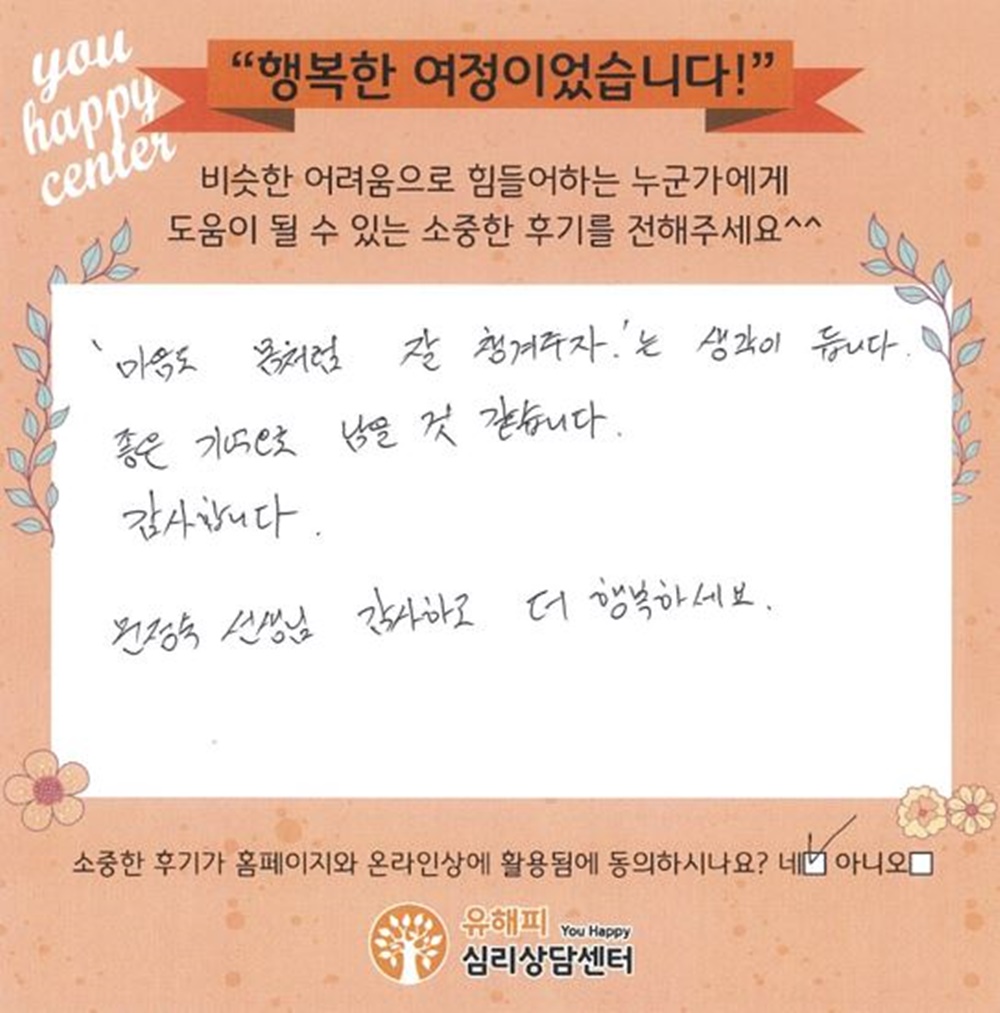 you
happy
center
“행복한 여정이었습니다!”
비슷한 어려움으로 힘들어하는 누군가에게
도움이 될 수 있는 소중한 후기를 전해주세요^^
‘마음도 몸처럼 잘 챙겨주자.’는 생각이 듭니다.
좋은 기억으로 남을 것 같습니다.
감사합니다.
원정숙 선생님 감사하고 더 행복하세요.
소중한 후기가 홈페이지와 온라인상에 활용됨에 동의하시나요? 네 아니오
유해피 You Happy
심리상담센터